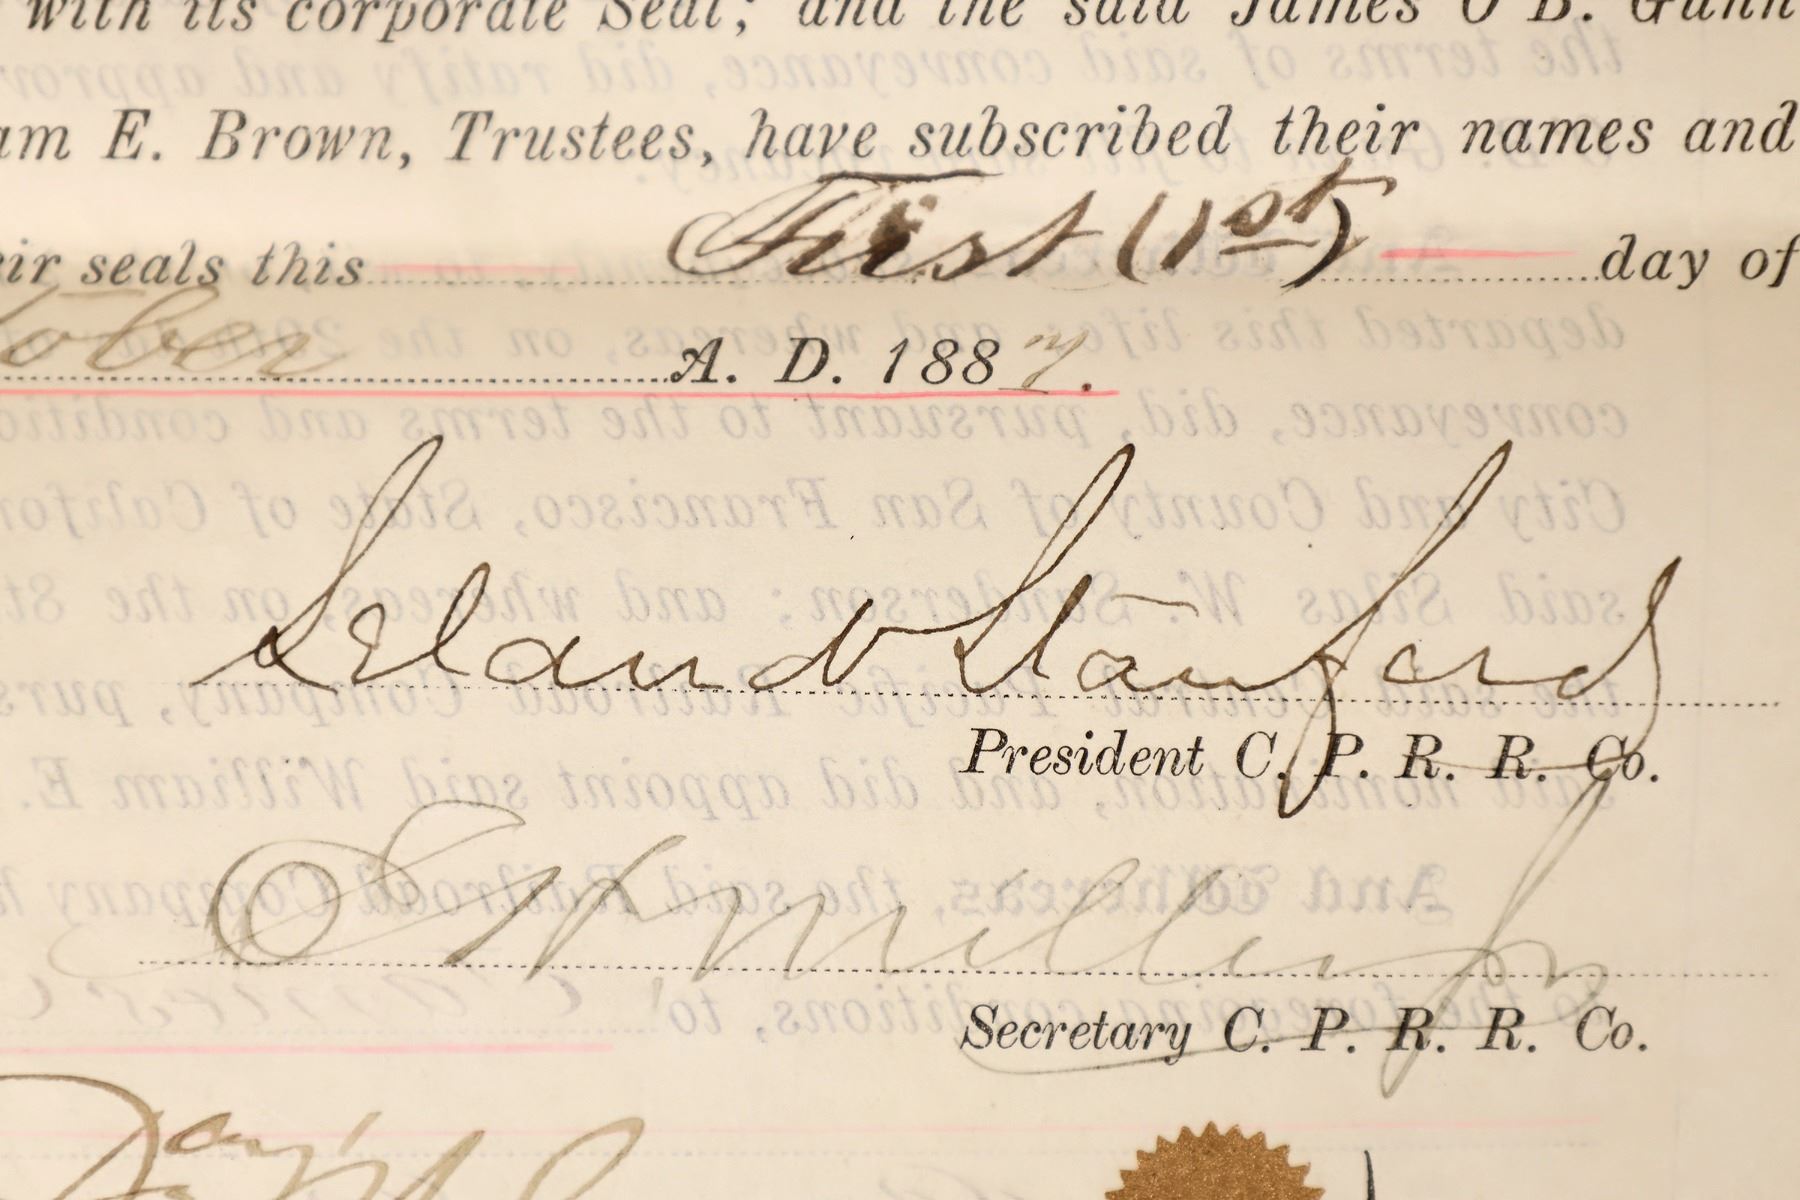 with its corporate Seal; and the said James O'B. Gunn
am E. Brown, Trustees, have subscribed their names and
eir seals this First (1st) day of
tober A. D. 1887.
Leland Stanford
President C. P. R. R. Co.
E H Miller Jr
Secretary C. P. R. R. Co.